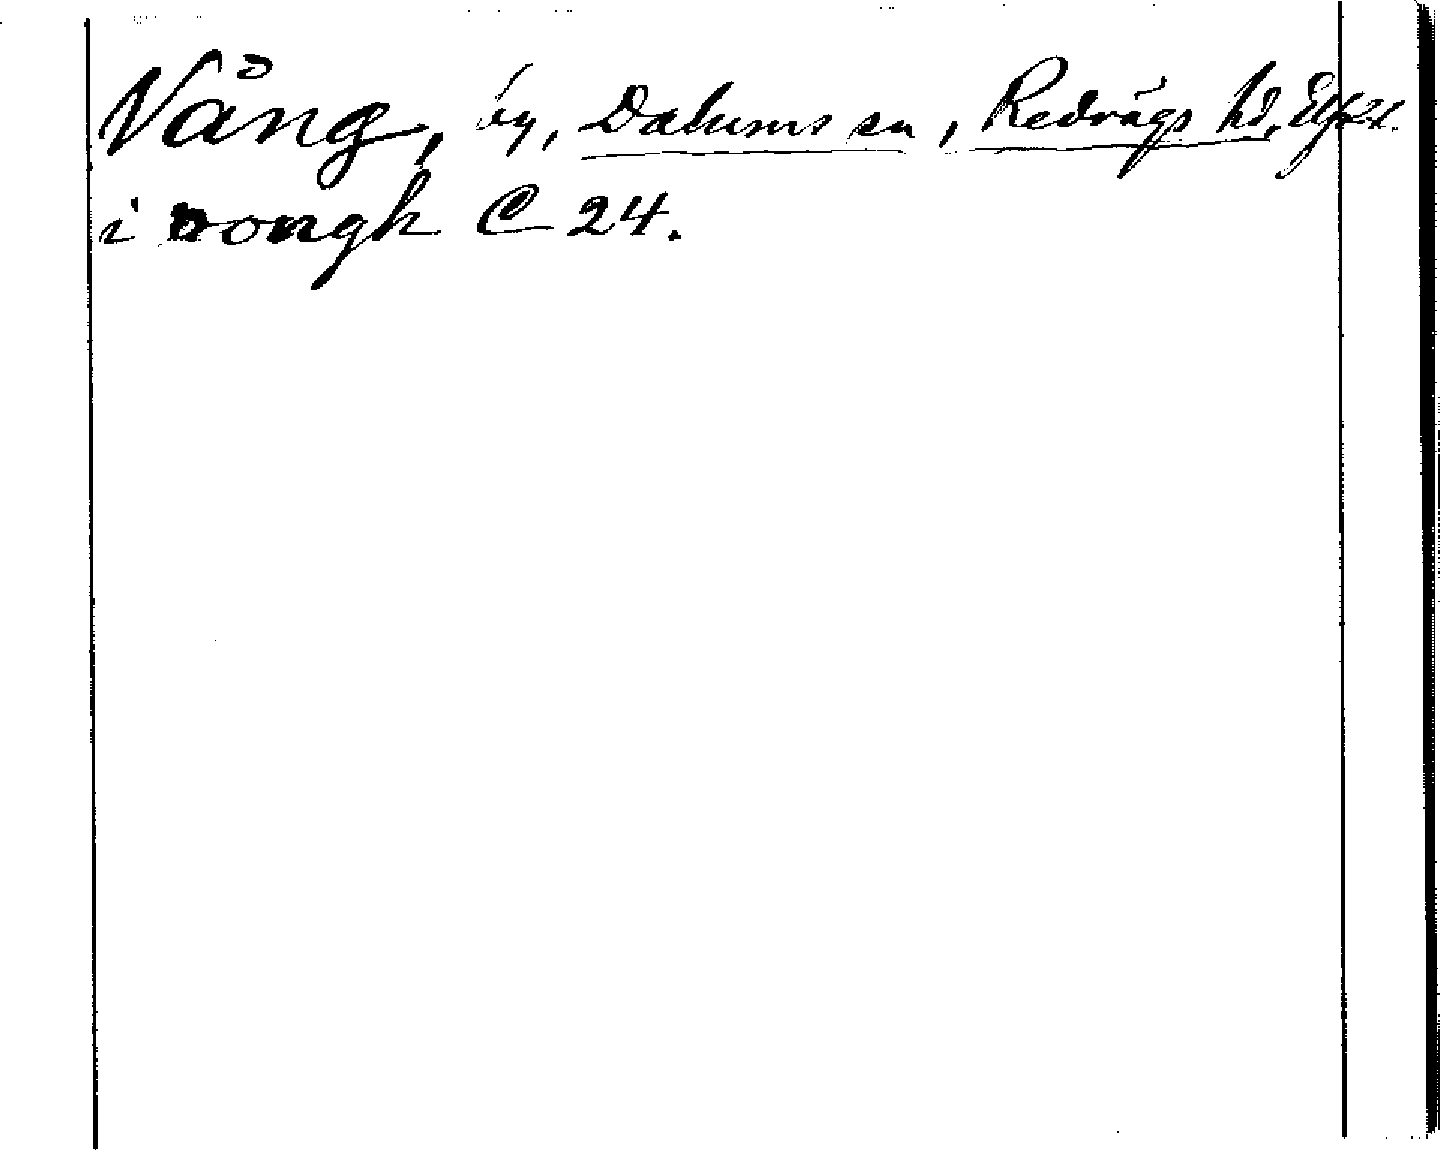 Vång, by, Dalums sn, Redvägs hd, Elfsbl.
i vongh C 24.